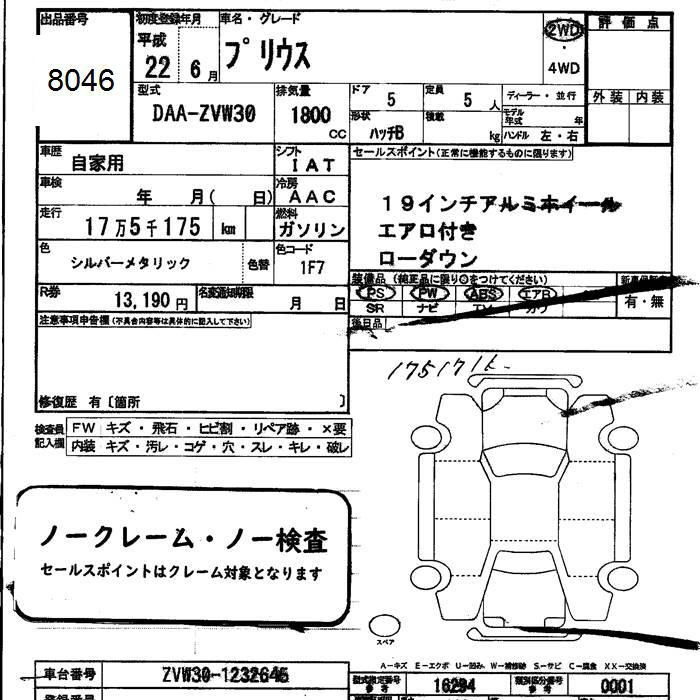 出品番号 初度登録年月 車名・グレード 評価点
8046 平成 22 6月 プリウス 2WD・4WD
外装 内装
型式 排気量 ドア 5 定員 5人 ディーラー・並行
DAA-ZVW30 1800cc 形状 ハッチB 積載 kg モデル年式 年
ハンドル 左・右
車歴 自家用 シフト IAT セールスポイント(正常に機能するものに限ります)
車検 年 月( 日) 冷房 AAC
19インチアルミホイール
走行 17万5千175 km 燃料 ガソリン
エアロ付き
ローダウン
色 シルバーメタリック 色替 色コード 1F7
装備品(純正品に限り○をつけてください)
R券 13,190円 名変通知期限 月 日
PS PW ABS エアB 有・無
SR ナビ TV カワ
注意事項申告欄(不具合内容等は具体的に記入して下さい) 後日品
175171k
修復歴 有〔箇所 〕
検査員記入欄 FW キズ・飛石・ヒビ割・リペア跡・×要
内装 キズ・汚レ・コゲ・穴・スレ・キレ・破レ
ノークレーム・ノー検査
セールスポイントはクレーム対象となります
スペア
A-キズ E-エクボ U-凹み W-補修跡 S-サビ C-腐食 XX-交換済
車台番号 ZVW30-1232645 型式指定番号 参考 16294 類別区分番号 参考 0001